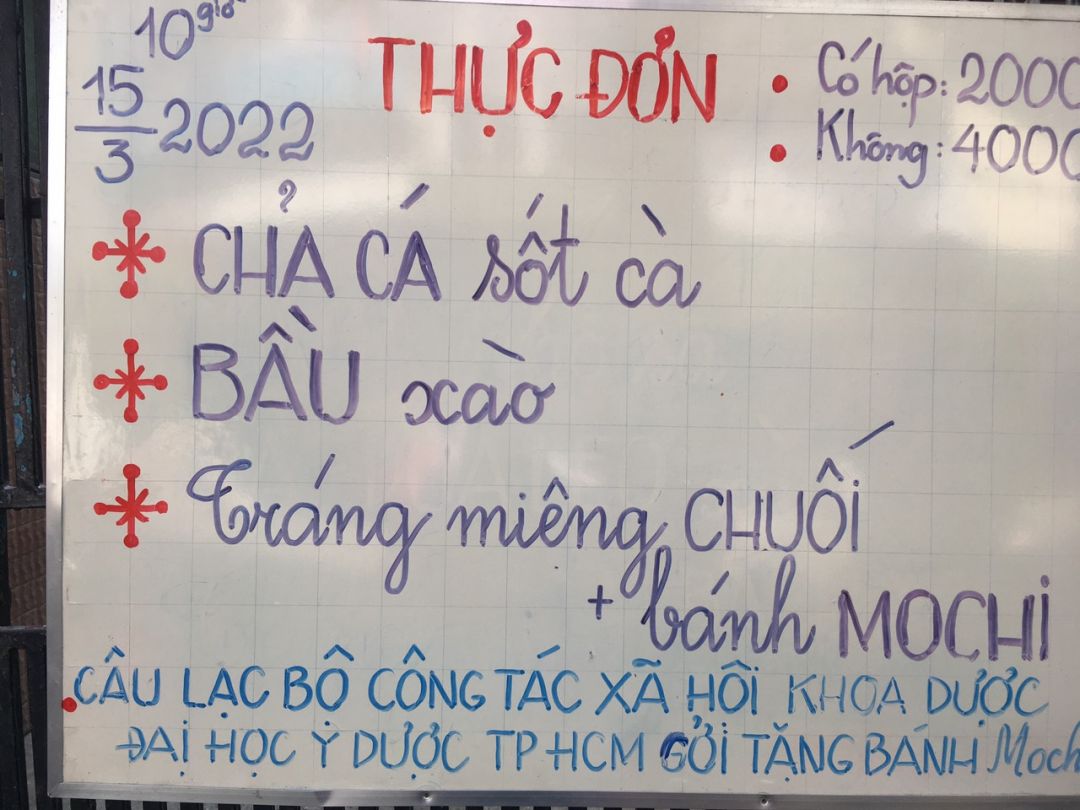 10 giờ
15/3 2022
THỰC ĐƠN
Có hộp: 2000
Không: 4000
CHẢ CÁ sốt cà
BẦU xào
Tráng miêng CHUỐI
+ bánh MOCHI
CÂU LẠC BỘ CÔNG TÁC XÃ HỘI KHOA DƯỢC
ĐẠI HỌC Y DƯỢC TP HCM GỞI TẶNG BÁNH Moch